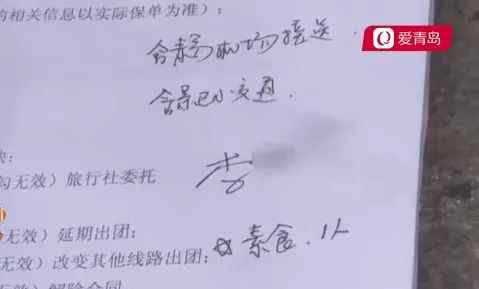 的相关信息以实际保单为准）：
爱青岛
含青岛机场接送.
含景区小交通.
勾无效）旅行社委托 李
无效）延期出团；
无效）改变其他线路出团； 素食. 1人
无效）解除合同